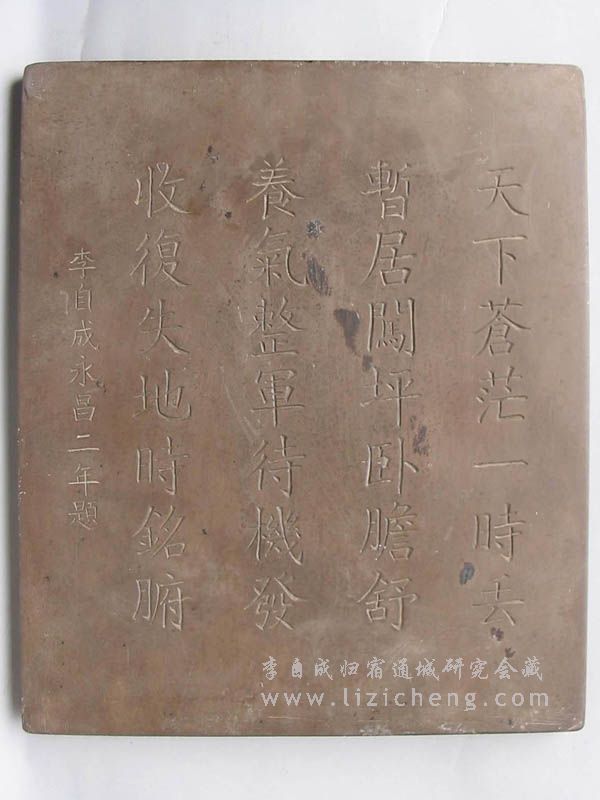 天下蒼茫一時去
暫居闖坪卧膽舒
養氣整軍待機發
收復失地時銘腑
李自成永昌二年題
李自成归宿通城研究会藏
www.lizicheng.com